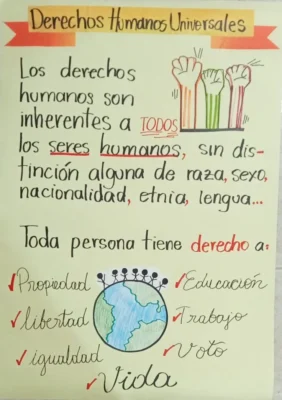 Derechos Humanos Universales
Los derechos
humanos son
inherentes a TODOS
los seres humanos, sin dis-
tinción alguna de raza, sexo,
nacionalidad, etnia, lengua...
Toda persona tiene derecho a:
Propiedad
Educación
libertad
Trabajo
igualdad
Voto
Vida